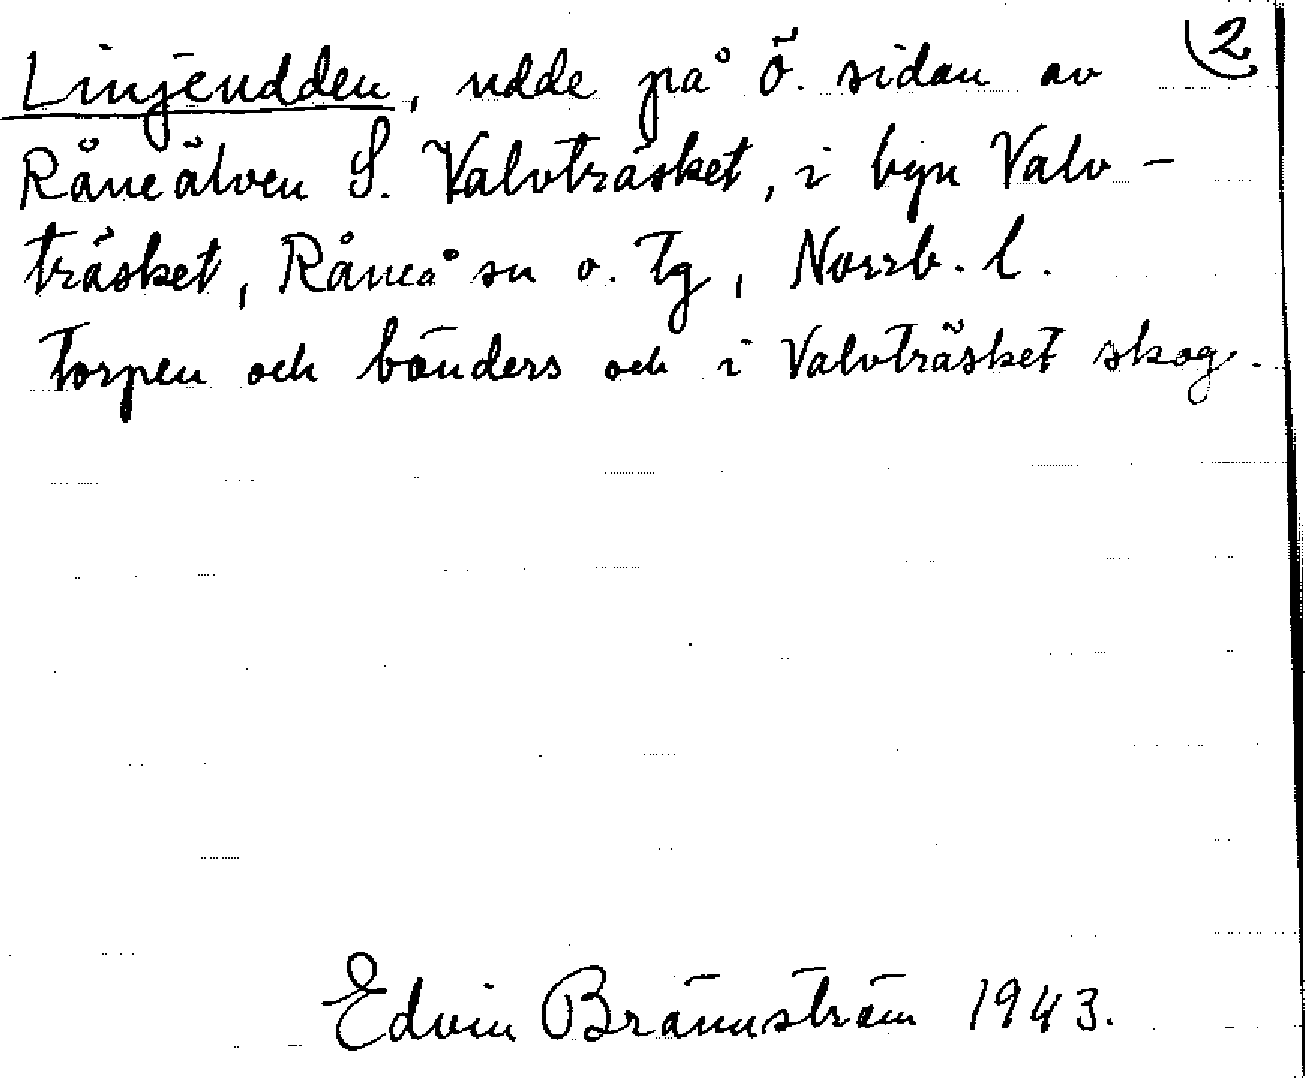 Linjeudden, udde på Ö. sidan av 2
Råneälven S. Valvträsket, i byn Valv-
träsket, Råneå sn o. tg, Norrb. l.
Torpen och bönders och i Valvträsket skog.
Edvin Brännström 1943.